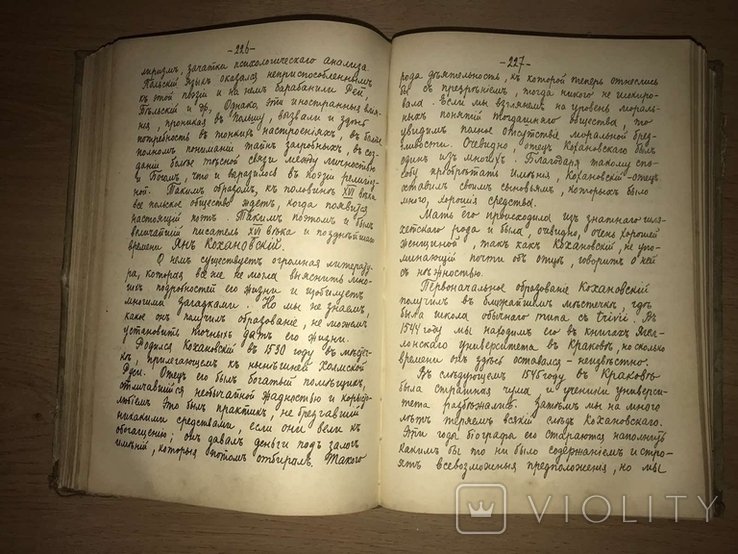 -226-
лиризм, зачатки психологическаго анализа.
Польскій языкъ оказался неприспособленнымъ
къ этой поэзіи и на нем барабанили Рей,
Бѣльскій и др. Однако, эти иностранныя влія-
нія, проникая въ Польшу, вызвали и здѣсь
потребность въ тонкихъ настроеніяхъ, въ болѣе
полномъ пониманіи тайн загробныхъ, въ соз-
даніи болѣе тѣсной связи между личностью
и Богомъ, что и выразилось въ поэзіи религіоз-
ной. Такимъ образомъ, къ половинѣ XVI вѣка
все польское общество ждетъ, когда появится
настоящій поэтъ. Такимъ поэтомъ и былъ
величайшій писатель XVI вѣка и позднѣйшаго
времени Янъ Кохановскій.
О немъ существуетъ огромная литерату-
ра, которая все же не могла выяснить мно-
гихъ подробностей его жизни и изобилуетъ
многими загадками. Но мы не знаемъ,
какое онъ получилъ образованіе, не можемъ
установить точныхъ датъ его жизни.
Родился Кохановскій въ 1530 году въ мѣстеч-
кѣ, прилегающемъ къ нынѣшней Холмской
Руси. Отецъ его былъ богатый помѣщикъ,
отличавшійся необычайной жадностью и корысто-
любіемъ. Это былъ практикъ, не брезгавшій
никакими средствами, если они вели къ
обогащенію; онъ давалъ деньги подъ залогъ
имѣній, которыя потомъ отбиралъ. Такого
-227-
рода дѣятельность, къ которой теперь отнеслись
бы съ презрѣніемъ, тогда никого не шокиро-
вала. Если мы взглянемъ на уровень мораль-
ныхъ понятій тогдашняго общества, то
увидимъ полное отсутствіе моральной брез-
гливости. Очевидно, отецъ Кохановскаго былъ
одинъ изъ многихъ. Благодаря такому спо-
собу пріобрѣтать имѣнія, Кохановскій-отецъ
оставилъ своимъ сыновьямъ, которыхъ было
много, хорошія средства.
Мать его происходила изъ знатнаго шля-
хетскаго рода и была, очевидно, очень хорошей
женщиной, такъ какъ Кохановскій, не упо-
минающій почти объ отцѣ, говоритъ о ней
съ нѣжностью.
Первоначальное образованіе Кохановскій
получилъ въ ближайшемъ мѣстечкѣ, гдѣ
была школа обычнаго типа съ trivi. Въ
1544 году мы находимъ его въ книгахъ Ягел-
лонскаго университета въ Краковѣ, но сколько
времени онъ здѣсь оставался - неизвѣстно.
Въ слѣдующемъ 1545 году въ Краковѣ
была страшная чума и ученики универси-
тета разбѣжались. Затѣмъ мы на много
лѣтъ теряемъ всякій слѣдъ Кохановскаго.
Эти годы біографы его стараются наполнить
какимъ бы то ни было содержаніемъ и стро-
ятъ всевозможныя предположенія, но мы
VIOLITY